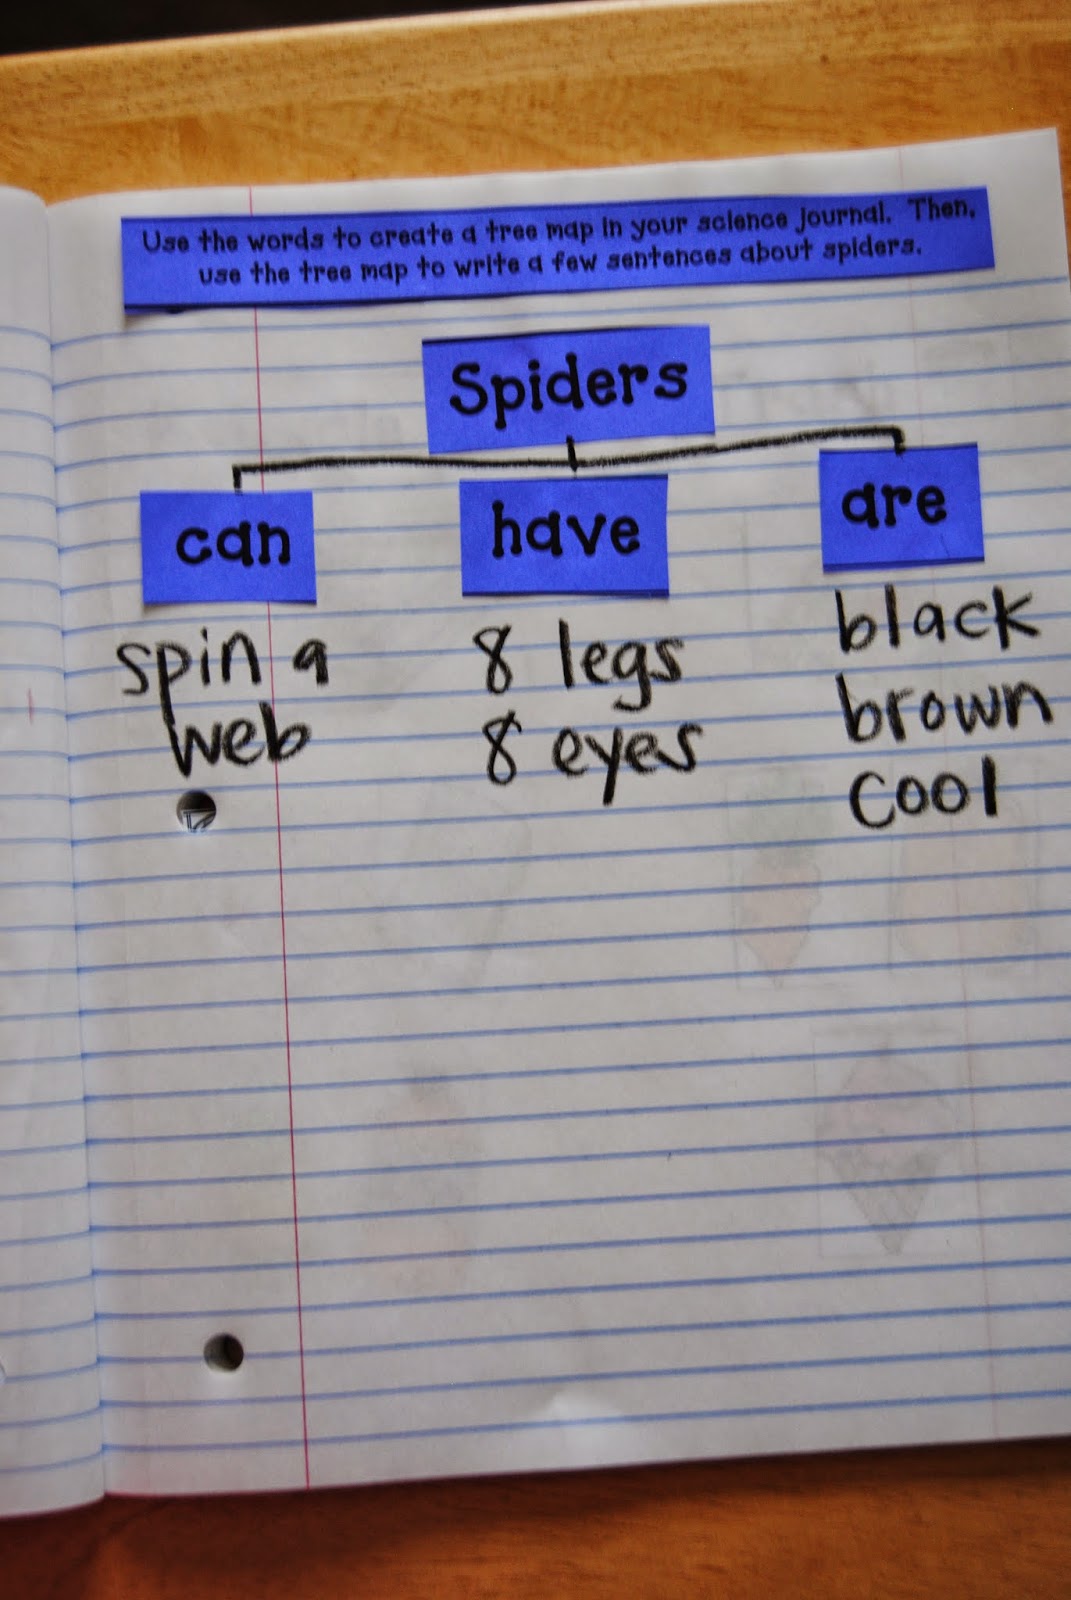 Use the words to create a tree map in your science journal. Then,
use the tree map to write a few sentences about spiders.
Spiders
can
have
are
spin a
web
8 legs
8 eyes
black
brown
cool